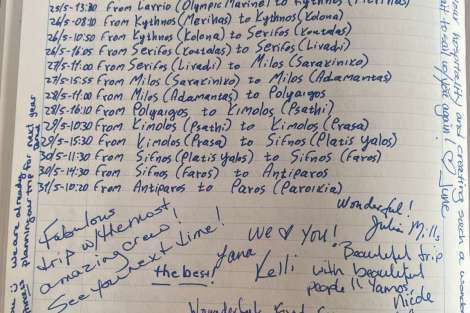 25/5-13:30 From Lavrio (Olympic Marine) to Kythnos (Merihas)
26/5-08:10 From Kythnos (Merihas) to Kythnos (Kolona)
26/5-10:50 From Kythnos (Kolona) to Serifos (Koutalas)
26/5-16:05 From Serifos (Koutalas) to Serifos (Livadi)
27/5-11:00 From Serifos (Livadi) to Milos (Sarakiniko)
27/5-15:55 From Milos (Sarakiniko) to Milos (Adamantas)
28/5-11:00 From Milos (Adamantas) to Polyaigos
28/5-16:10 From Polyaigos to Kimolos (Psathi)
29/5-10:30 From Kimolos (Psathi) to Kimolos (Prasa)
29/5-15:30 From Kimolos (Prasa) to Sifnos (Platis Yalos)
30/5-11:30 From Sifnos (Platis Yalos) to Sifnos (Faros)
30/5-14:30 From Sifnos (Faros) to Antiparos
31/5-10:20 From Antiparos to Paros (Paroikia)
we are already
planning our trip for next year
your hospitality and creating such a wonderful
again! June
Fabulous
trip w/the most
amazing crew!
See you next time!
the best!
Yana
We ♡ You!
Kelli
Wonderful!
Julia
Beautiful trip
with beautiful
people!! Yamas
Nicole
Wonderful